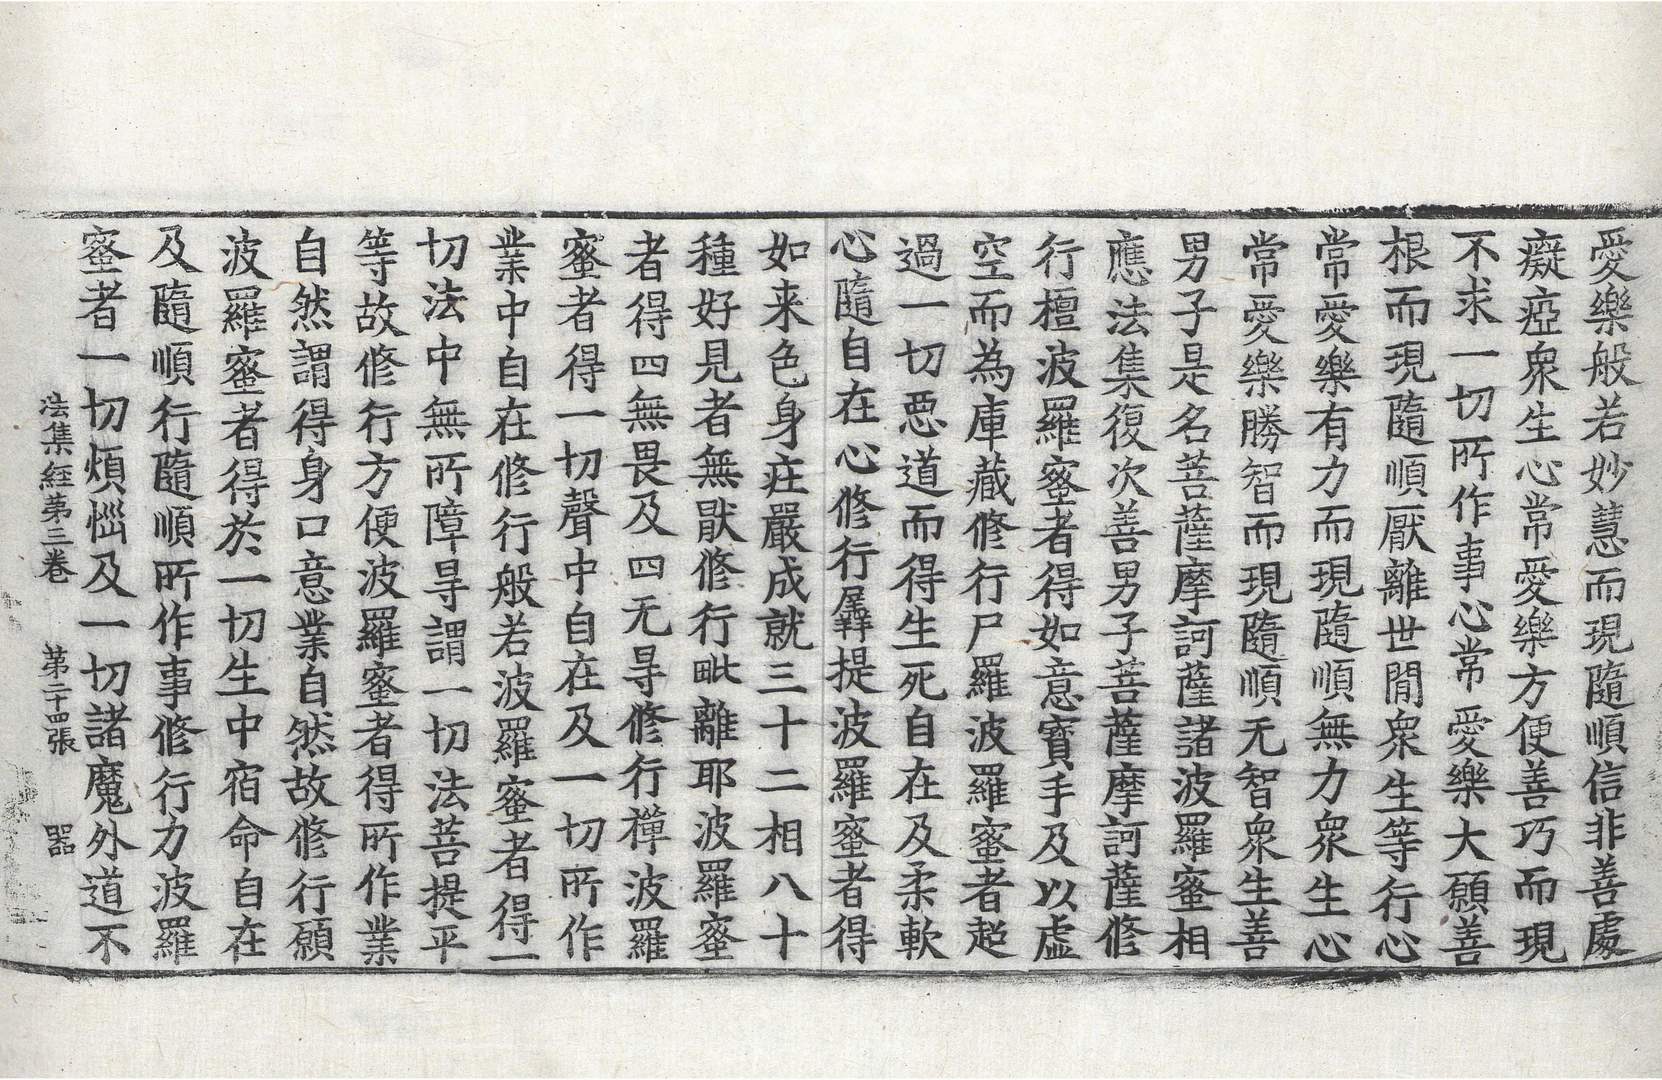 愛樂般若妙慧而現隨順信非善處
癡瘂衆生心常愛樂方便善巧而現
不求一切所作事心常愛樂大願善
根而現隨順厭離世間衆生等行心
常愛樂有力而現隨順無力衆生心
常愛樂勝智而現隨順无智衆生善
男子是名菩薩摩訶薩諸波羅蜜相
應法集復次善男子菩薩摩訶薩修
行檀波羅蜜者得如意寶手及以虛
空而為庫藏修行尸羅波羅蜜者超
過一切惡道而得生死自在及柔軟
心隨自在心修行羼提波羅蜜者得
如来色身疘嚴成就三十二相八十
種好見者無猒修行毗離耶波羅蜜
者得四無畏及四无㝵修行禪波羅
蜜者得一切聲中自在及一切所作
業中自在修行般若波羅蜜者得一
切法中無所障㝵謂一切法菩提平
等故修行方便波羅蜜者得所作業
自然謂得身口意業自然故修行願
波羅蜜者得於一切生中宿命自在
及隨順行隨順所作事修行力波羅
蜜者一切煩惱及一切諸魔外道不
法集經第三卷 第二十四張 器